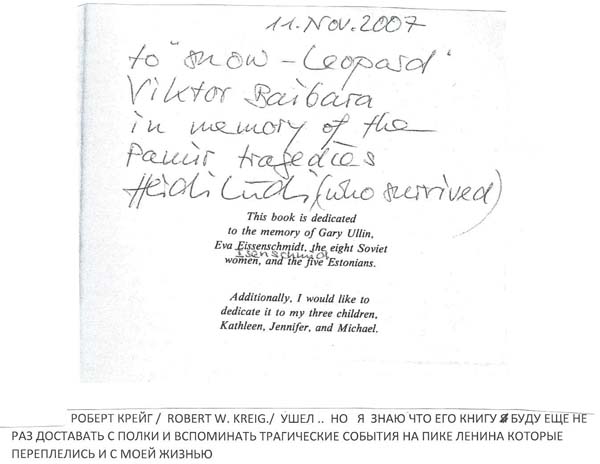 11. Nov. 2007
to "snow-Leopard"
Viktor Baibara
in memory of the
Pamir tragedies
Heidi Lüdi (who survived)
This book is dedicated
to the memory of Gary Ullin,
Eva Eissenschmidt, the eight Soviet
Isenschmidt
women, and the five Estonians.
Additionally, I would like to
dedicate it to my three children,
Kathleen, Jennifer, and Michael.
РОБЕРТ КРЕЙГ / ROBERT W. KREIG./ УШЕЛ .. НО Я ЗНАЮ ЧТО ЕГО КНИГУ БУДУ ЕЩЕ НЕ
РАЗ ДОСТАВАТЬ С ПОЛКИ И ВСПОМИНАТЬ ТРАГИЧЕСКИЕ СОБЫТИЯ НА ПИКЕ ЛЕНИНА КОТОРЫЕ
ПЕРЕПЛЕЛИСЬ И С МОЕЙ ЖИЗНЬЮ